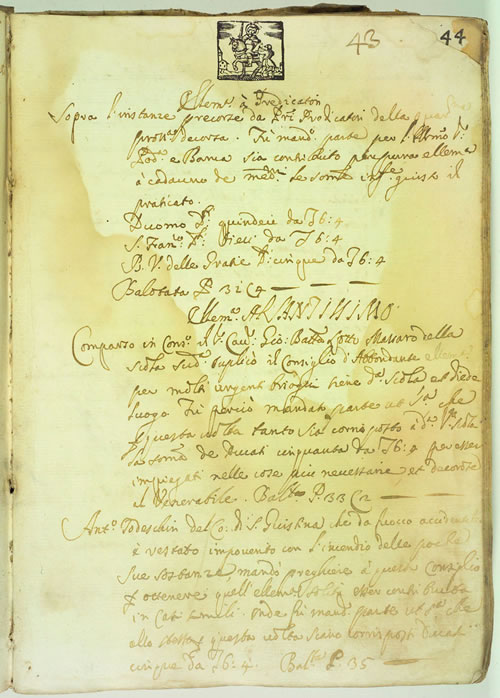 43 44
Ellem.ª à Predicatori
Sopra l'instanze precorse da Pri Predicatori della
decorsa. Fù mand.ª parte per l'Ill.mo S.r
Pod.à e Banca sia contribuito per pura ellema
à cadauno de med.mi le somme infr.e giusto il
praticato.
Duomo D.ti quindeci da £6:4
S. Fran.co D.ti dieci da £6:4
B. V. delle Gratie D.ti cinque da £6:4
Balotata P. 31 C 4
Ellem.ª A
Comparso in Cons.º il S.r Cau.r Gio: Batta Massaro della
Scola sud.ª suplicò il Consiglio d'Abbondante
per molti urgenti bisogni tiene d.ª Scola et
luogo Fù perciò mandata parte ut s.ª che
questa volta tanto sia corrisposto à d.ª Scola
la som.ª de Ducati cinquanta da £6:4 per esser
impiegati nelle cose più necessarie, et decorose
il Venerabile. Bal.ta P. 33 C 2
Ant.º Todeschin del Co: di S. Giustina che da fuoco accidental
è restato impoverito con l'incendio delle poche
sue sostanze, mandò preghiere à questo Consiglio
ottenere quell'ellem.ª solita esser contribuita
in casi simili. onde fù mand.ª parte ut s.ª che
questa volta siano corrisposti Ducati
cinque da £6:4. Bal.ta P. 35